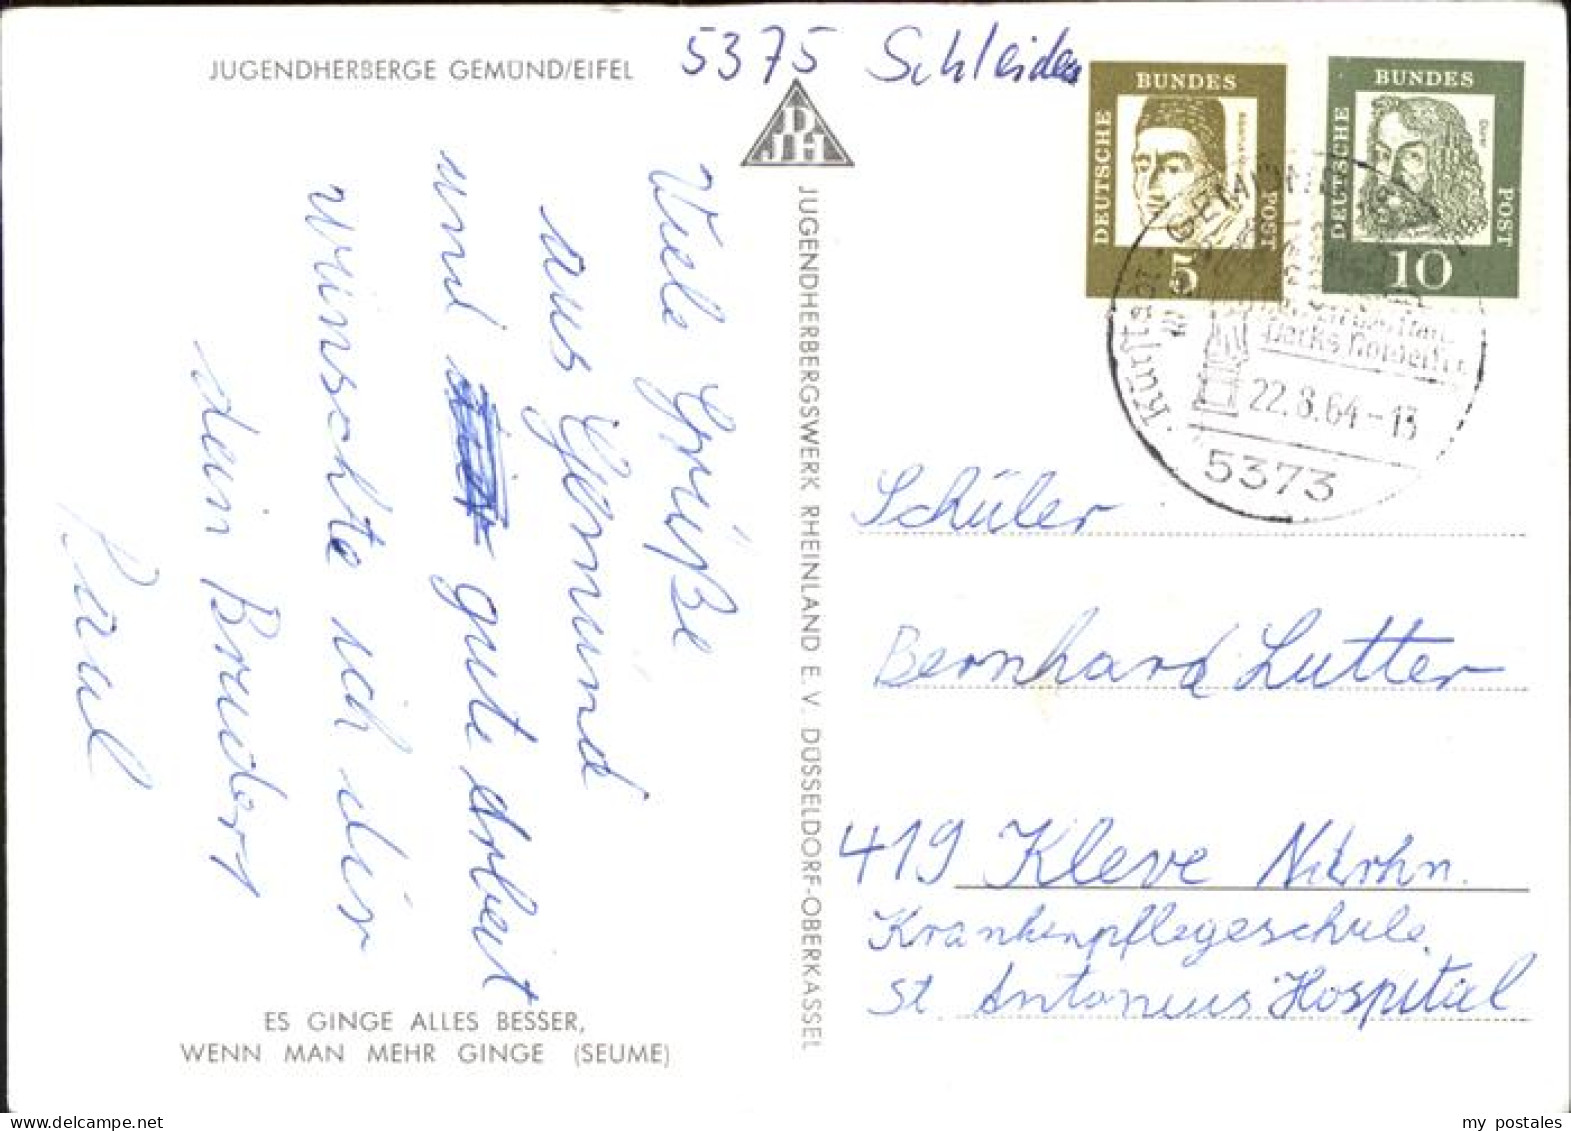 JUGENDHERBERGE GEMÜND/EIFEL
5375 Schleiden
DJH
JUGENDHERBERGSWERK RHEINLAND E. V. DÜSSELDORF-OBERKASSEL
Viele Grüße
aus Gemünd
und gute Arbeit
wünschte ich dir
dein Bruder
Paul
ES GINGE ALLES BESSER,
WENN MAN MEHR GINGE (SEUME)
DEUTSCHE BUNDES POST
5
DEUTSCHE BUNDES POST
Dürer
10
22.8.64-13
5373
Schüler
Bernhard Lutter
419 Kleve Ndrrhn.
Krankenpflegeschule
St. Antonius Hospital
my postales